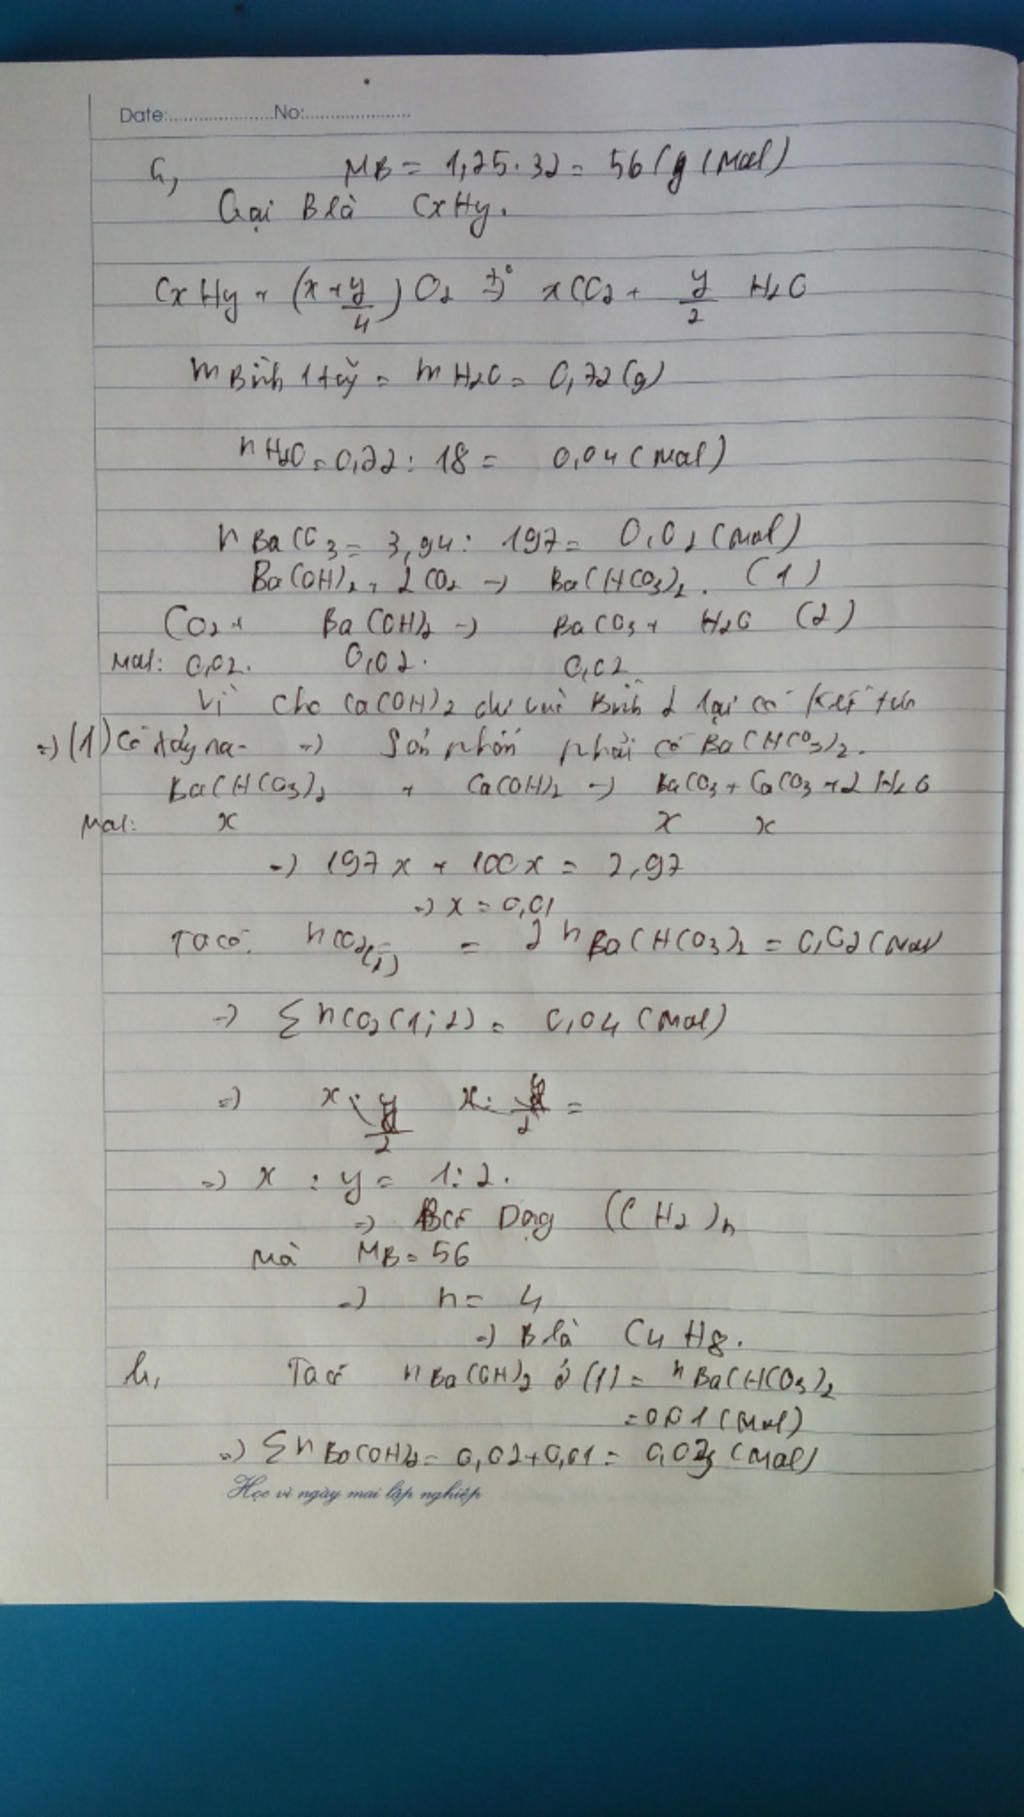 Date:.....................No:.....................
a, MB = 1,75.32 = 56 (g/mol)
Gọi B là CxHy.
CxHy + (x+y/4) O2 t°→ xCO2 + y/2 H2O
m Bình 1 tăng = m H2O = 0,72(g)
nH2O = 0,72 : 18 = 0,04 (mol)
nBaCO3 = 3,94 : 197 = 0,02 (mol)
Ba(OH)2 + 2CO2 → Ba(HCO3)2. (1)
CO2 + Ba(OH)2 → BaCO3 + H2O (2)
Mol: 0,02. 0,02. 0,02
Vì cho Ca(OH)2 dư vào Bình 2 lại có kết tủa
=> (1) có xảy ra => Sản phẩm phải có Ba(HCO3)2.
Ba(HCO3)2 + Ca(OH)2 → BaCO3 + CaCO3 + 2H2O
Mol: x x x
=> 197x + 100x = 2,97
=> x = 0,01
Ta có: nCO2(1) = 2nBa(HCO3)2 = 0,02 (mol)
=> ΣnCO2(1;2) = 0,04 (mol)
=> x : y/2 x : y/2 =
=> x : y = 1:2.
=> B có Dạng (CH2)n
Mà MB = 56
=> n = 4
=> B là C4H8.
b, Ta có nBa(OH)2 ở (1) = nBa(HCO3)2
= 0,01 (mol)
=> ΣnBa(OH)2 = 0,02 + 0,01 = 0,03 (mol)
Học vì ngày mai lập nghiệp